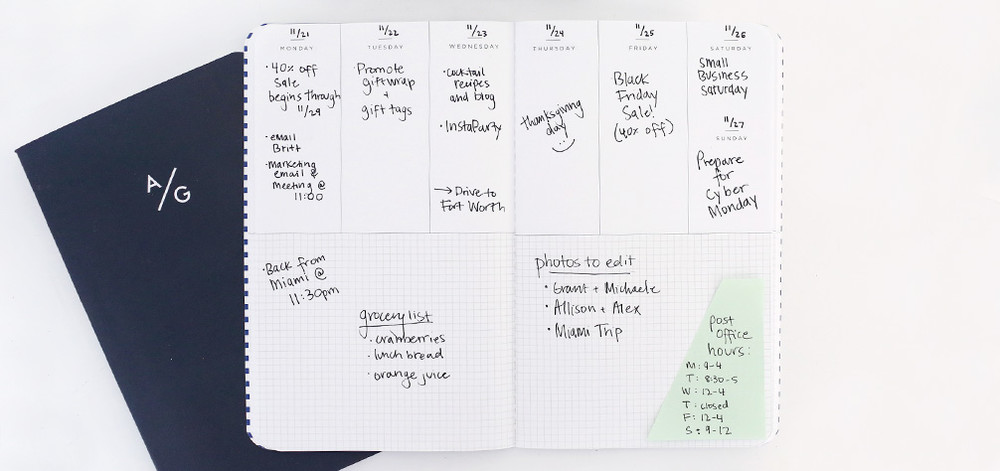 A/G
11/21
MONDAY
· 40% off
Sale
begins through
11/29
· email
Britt
· Marketing
email &
meeting @
11:00
11/22
TUESDAY
· Promote
giftwrap
+
gift tags
11/23
WEDNESDAY
· cocktail
recipes
and blog
· InstaParty
→ Drive to
Fort Worth
11/24
THURSDAY
thanksgiving
day
11/25
FRIDAY
Black
Friday
Sale!
(40% off)
11/26
SATURDAY
Small
Business
Saturday
11/27
SUNDAY
Prepare
for
Cyber
Monday
· Back from
Miami @
11:30pm
grocery list
· cranberries
· lunch bread
· orange juice
photos to edit
· Grant + Michaele
· Allison + Alex
· Miami Trip
post
office
hours:
M: 9-4
T: 8:30-5
W: 12-4
T: closed
F: 12-4
S: 9-12